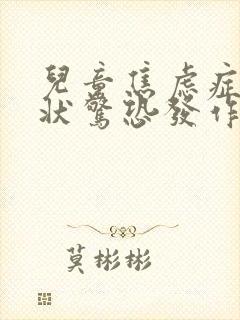 兒童焦虑症
狀驚恐發作
莫彬彬